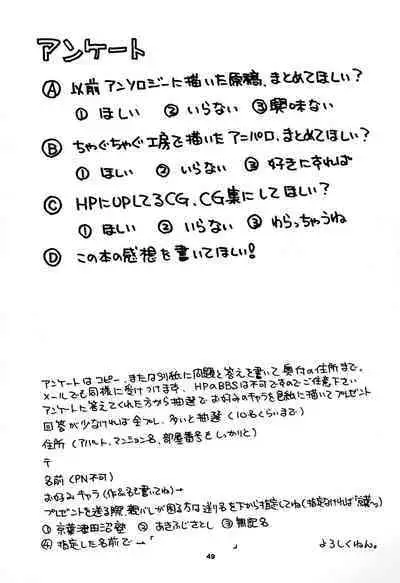 アンケート
Ⓐ 以前アンソロジーに描いた原稿、まとめてほしい?
① ほしい ② いらない ③ 興味ない
Ⓑ ちゃぐちゃぐ工房で描いたアニパロ、まとめてほしい?
① ほしい ② いらない ③ 好きにすれば
Ⓒ HPにUPしてるCG、CG集にしてほしい?
① ほしい ② いらない ③ わらっちゃうね
Ⓓ この本の感想を書いてほしい!
アンケートはコピー、または別紙に問題と答えを書いて奥付の住所まで。
メールでも同様に受けつけます。HPのBBSは不可ですのでご注意下さい
アンケートに答えてくれた方から抽選でお好みのキャラを色紙に描いてプレゼント
回答が少なければ全プレ、多いと抽選(10名くらいまで)
住所(アパート、マンション名、部屋番号もしっかりと)
〒
名前(PN不可)
お好みキャラ(作品名も書いてね)→
プレゼントを送る際、親バレが困る方は送り名を下から指定してね(指定なければ
① 京葉津田沼塾 ② あきふじさとし ③ 無記名
④ 指定した名前で→「 」
よろしくねん。
49